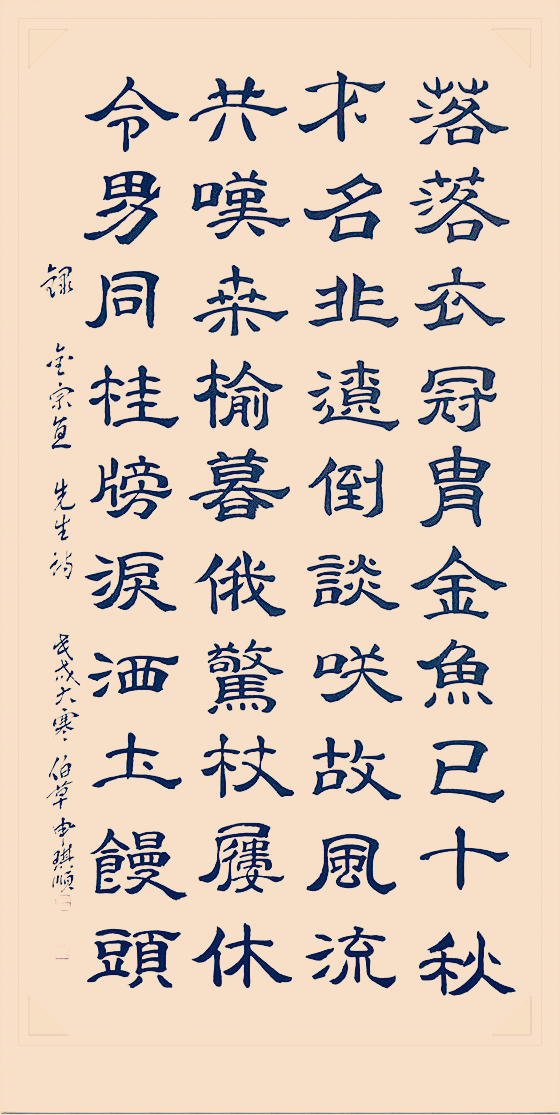 落落衣冠冑金魚已十秋
才名非遼倒談咲故風流
共嘆桒榆暮俄驚杖屨休
令男同桂牓淚洒土饅頭
錄 金宗直 先生詩 戊戌大寒 伯草 申琪順